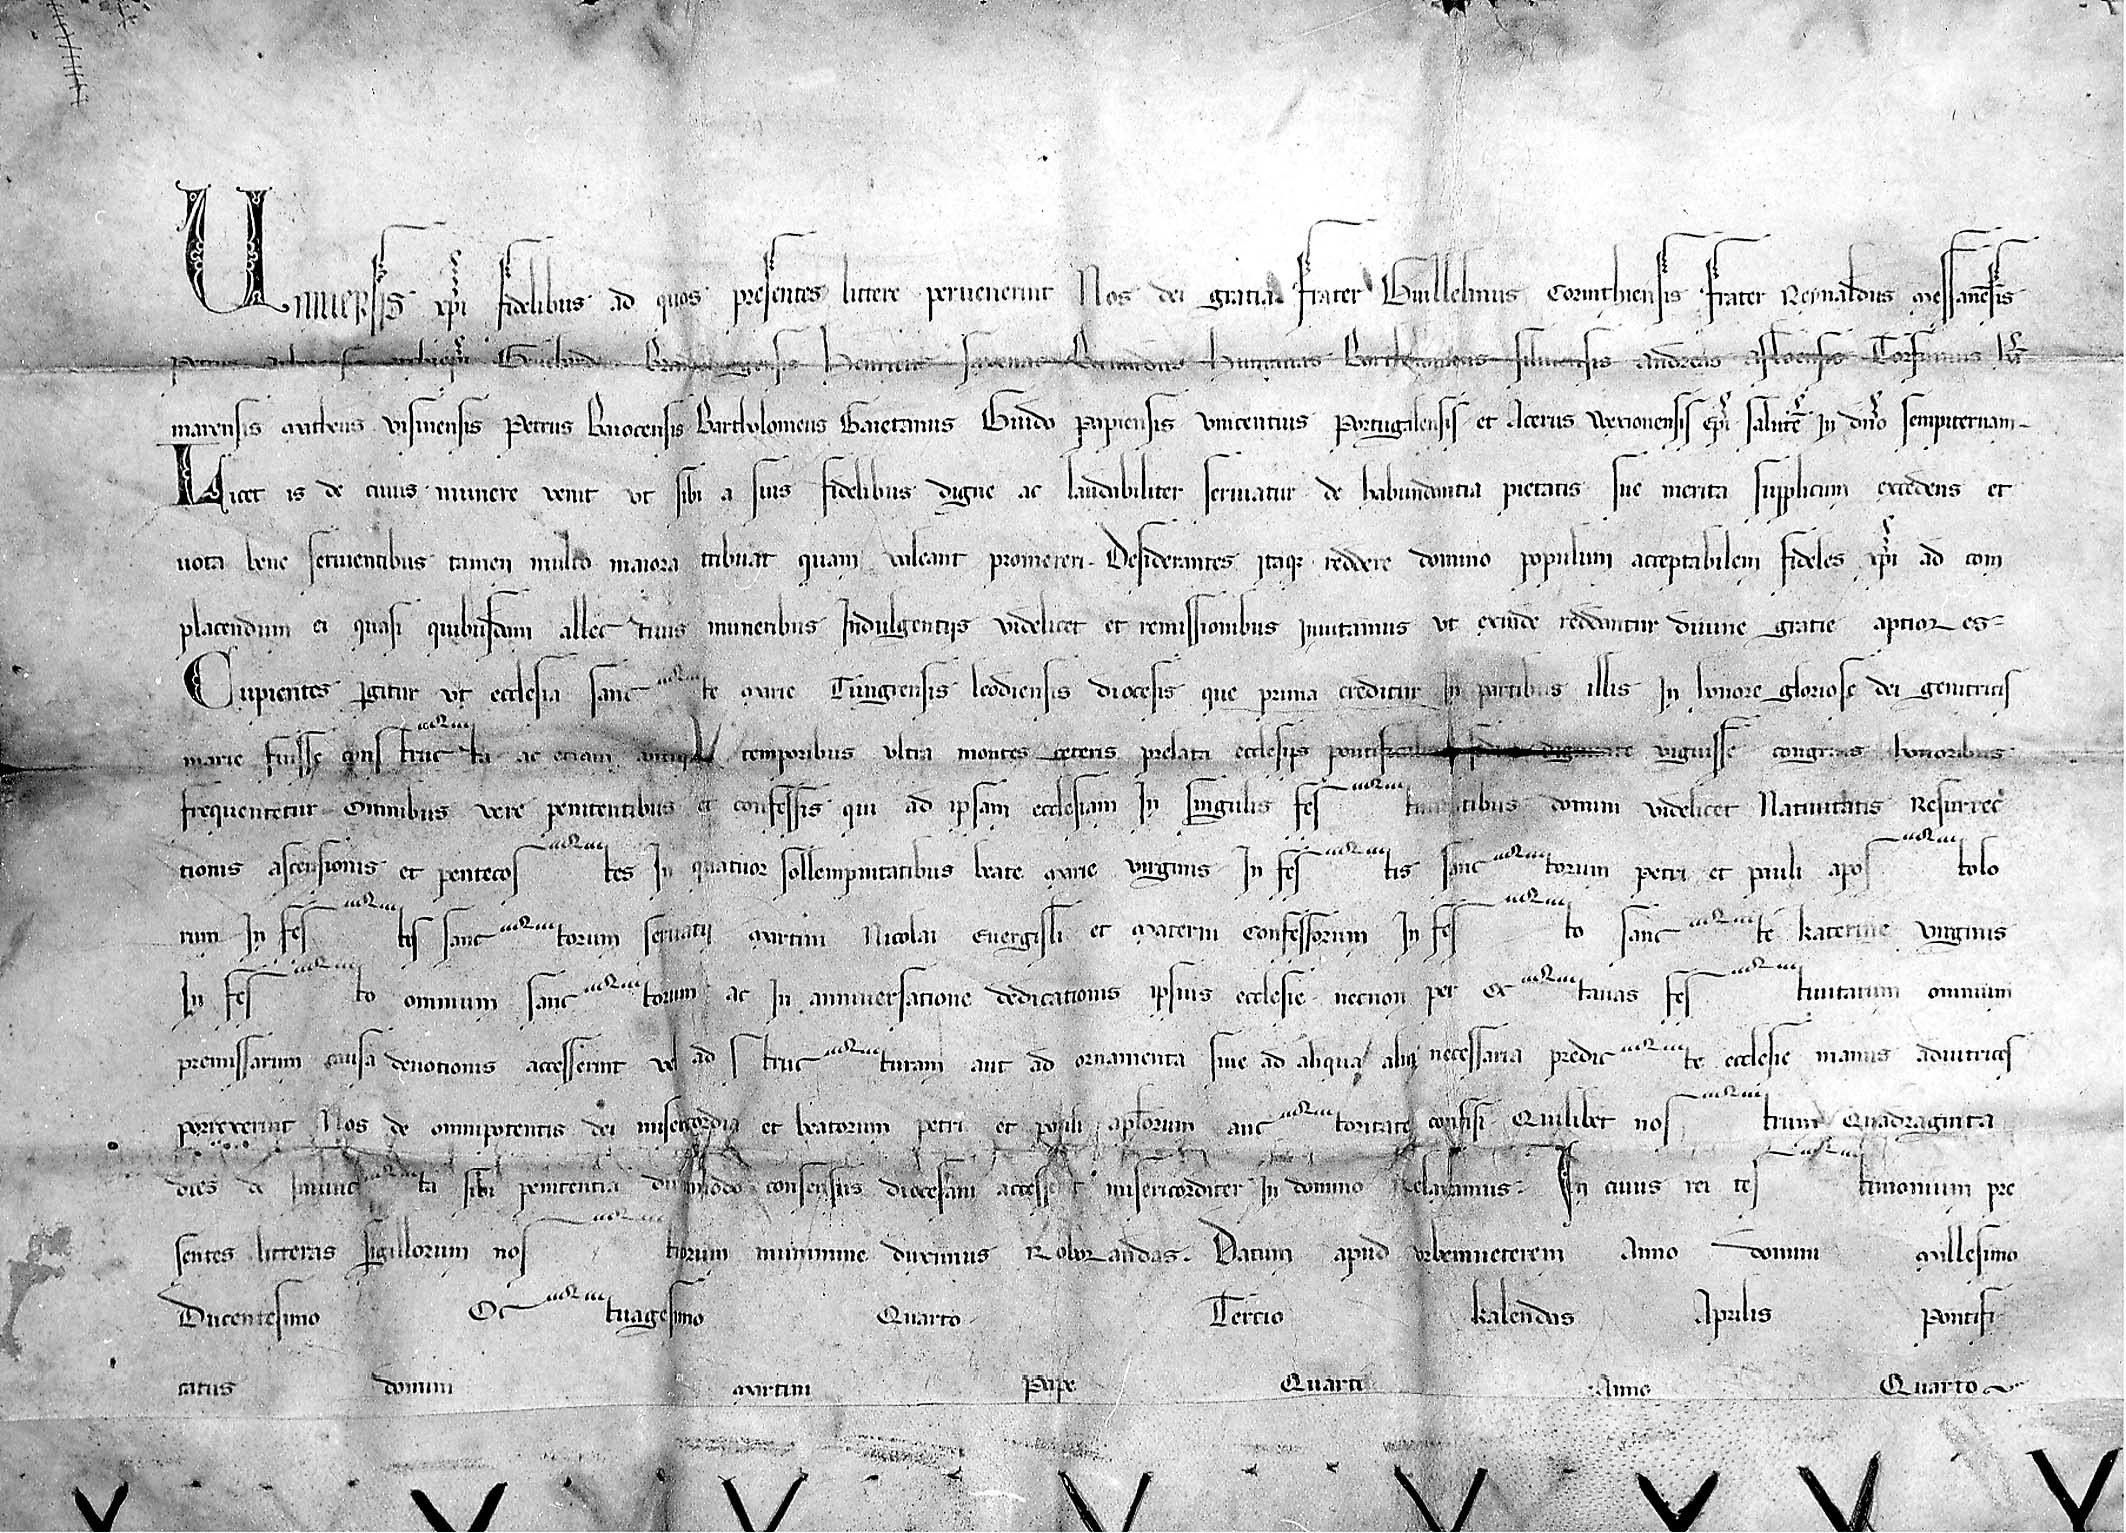 Uniuersis xpi fidelibus ad quos presentes littere peruenerint Nos dei gratia frater Guillelmus Corinthiensis frater Reynaldus Messanensis
Petrus Henricus Bartholomeus siluensis Andreas Asloensis Torsinus
marensis Matheus visinensis Petrus Baiocensis Bartholomeus Gaietanus Guido Papiensis vincentius Portugalensis et Acerus Wexionensis epi salute In dno sempiternam
Licet is de cuius munere venit vt sibi a suis fidelibus digne ac laudabiliter seruiatur de habundantia pietatis sue merita supplicum excedens et
uota bene seruientibus tamen multo maiora tribuat quam valeant promereri Desiderantes Itaq reddere domino populum acceptabilem fideles xpi ad com
placendum ei quasi quibusdam allectiuis muneribus Indulgentijs videlicet et remissionibus Inuitamus vt exinde reddantur diuine gratie aptiores
Cupientes Igitur vt ecclesia sancte Marie Tungrensis leodiensis diocesis que prima creditur In partibus illis In honore gloriose dei genitricis
marie fuisse constructa ac etiam antiquis temporibus vltra montes ceteris prelata ecclesijs pontificalis dignitate viguisse congruis honoribus
frequentetur Omnibus vere penitentibus et confessis qui ad ipsam ecclesiam In singulis festiuitatibus domini videlicet Natiuitatis Resurrec
tionis ascensionis et pentecostes In quatuor sollempnitatibus beate Marie virginis In festis sanctorum petri et pauli aposтolo
rum In festis sanctorum seruatij Martini Nicolai Euergisli et Materni Confessorum In festo sancte katerine virginis
In festo omnium sanctorum ac In anniuersatione dedicationis ipsius ecclesie necnon per Octauas festiuitatum omnium
premissarum causa deuotionis accesserint vel ad structuram aut ad ornamenta siue ad aliqua alia necessaria predicte ecclesie manus adiutrices
porrexerint Nos de omnipotentis dei misericordia et beatorum petri et pauli aplorum auctoritate confisi Quilibet nostrum Quadraginta
dies de Iniuncta sibi penitentia dummodo consensus diocesani accesserit misericorditer In domino Relaxamus In cuius rei testimonium pre
sentes litteras sigillorum nostrorum munimine duximus Roborandas Datum apud vrbemueterem Anno domini Millesimo
Ducentesimo Octuagesimo Quarto Tercio kalendas Aprilis Pontifi
catus domini Martini Pape Quarti Anno Quarto